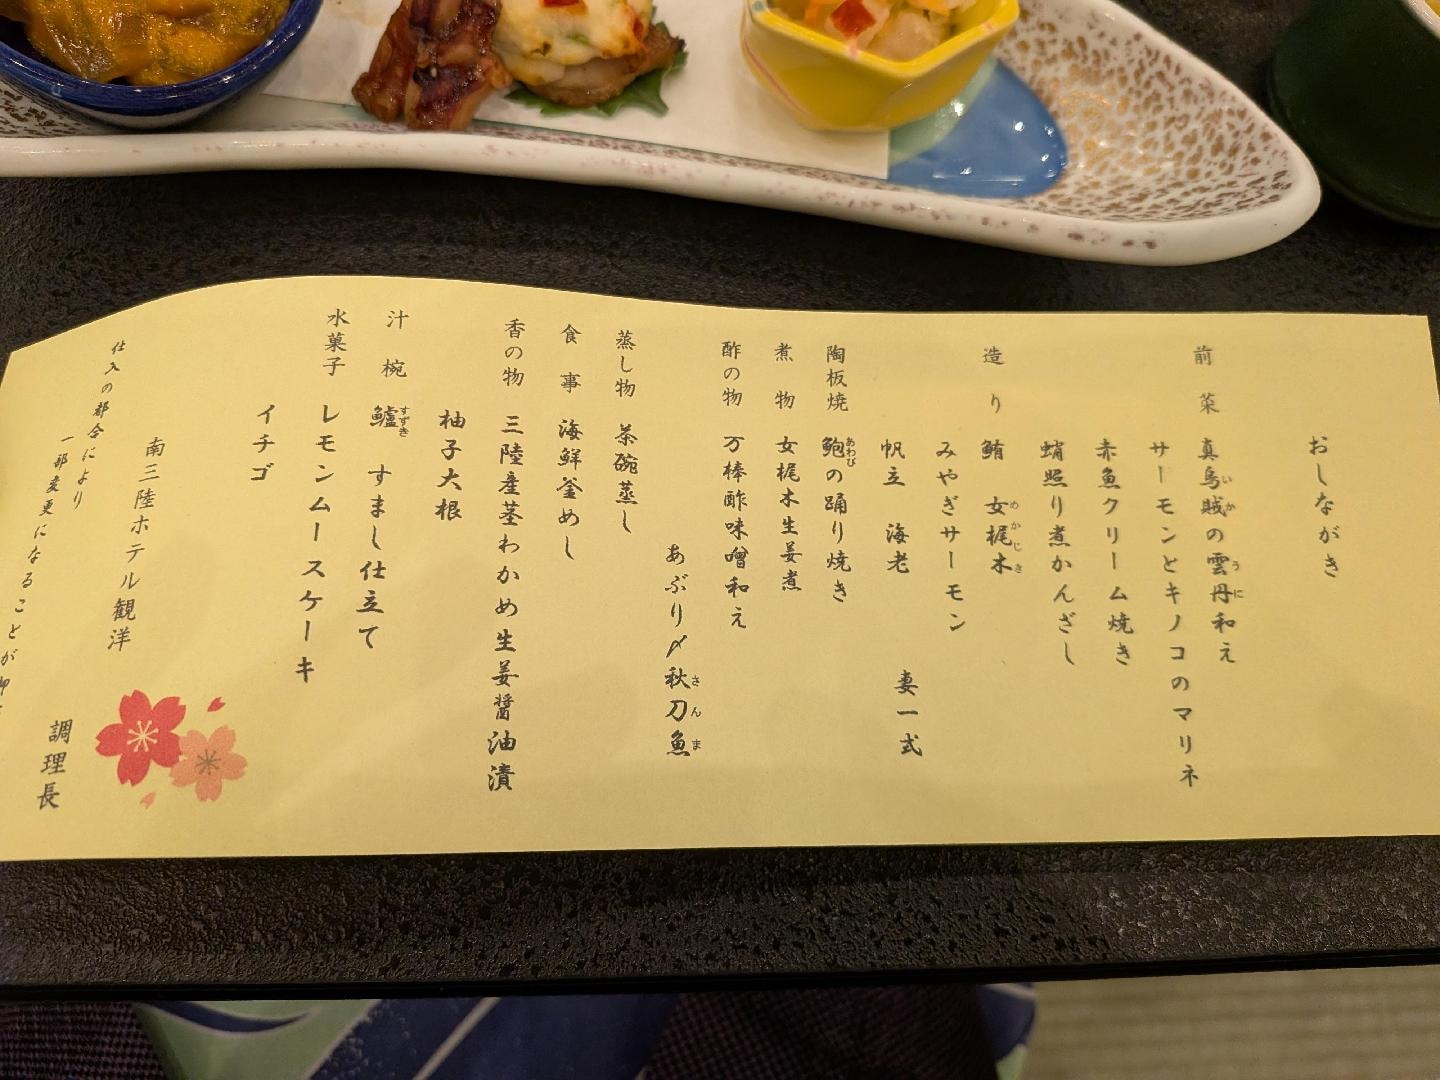 おしながき
前菜 真烏賊の雲丹和え
サーモンとキノコのマリネ
赤魚クリーム焼き
蛸照り煮かんざし
造り 鮪 女梶木
みやぎサーモン
帆立 海老 妻一式
陶板焼 鮑の踊り焼き
煮物 女梶木生姜煮
酢の物 万棒酢味噌和え
あぶり〆秋刀魚
蒸し物 茶碗蒸し
食事 海鮮釜めし
香の物 三陸産茎わかめ生姜醤油漬
柚子大根
汁椀 鱸 すまし仕立て
水菓子 レモンムースケーキ
イチゴ
南三陸ホテル観洋
調理長
仕入の都合により
一部変更になることが